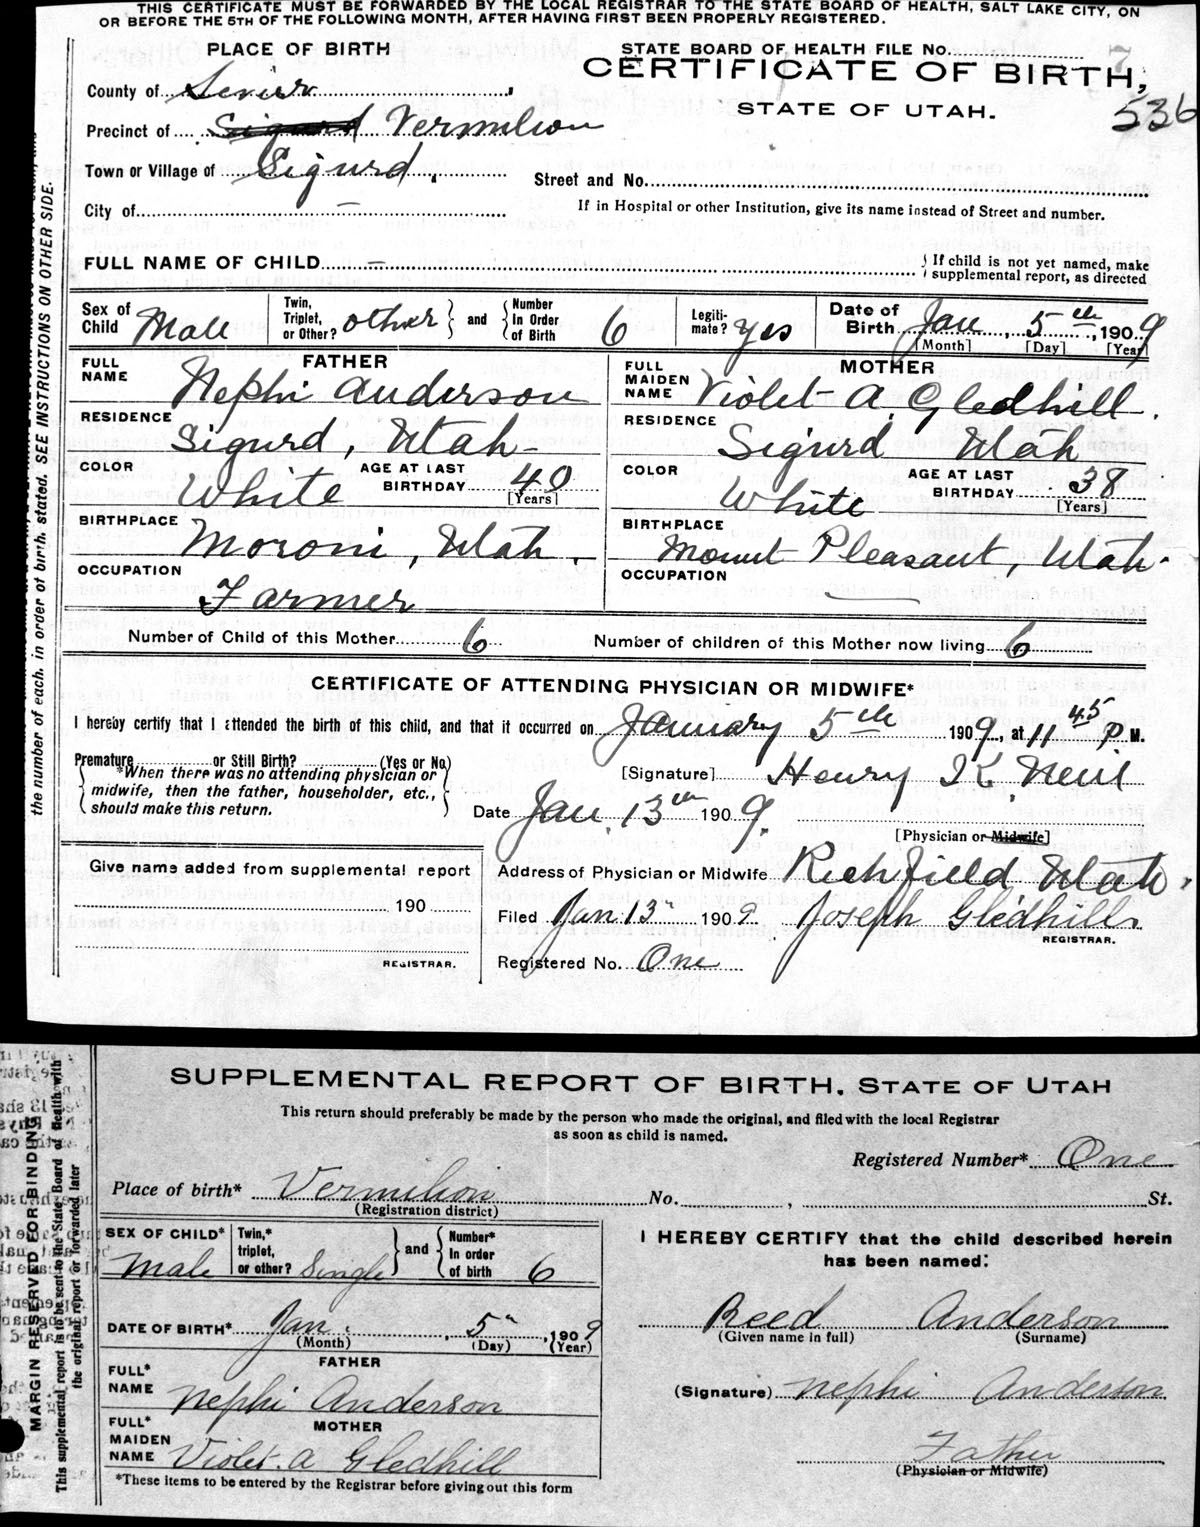 THIS CERTIFICATE MUST BE FORWARDED BY THE LOCAL REGISTRAR TO THE STATE BOARD OF HEALTH, SALT LAKE CITY, ON
OR BEFORE THE 5TH OF THE FOLLOWING MONTH, AFTER HAVING FIRST BEEN PROPERLY REGISTERED.
PLACE OF BIRTH
STATE BOARD OF HEALTH FILE No.
CERTIFICATE OF BIRTH,
STATE OF UTAH.
536
County of Sevier
Precinct of Sigurd Vermilion
Town or Village of Sigurd.
Street and No.
City of —
If in Hospital or other Institution, give its name instead of Street and number.
FULL NAME OF CHILD —
If child is not yet named, make
supplemental report, as directed
Sex of Child Male
Twin, Triplet, or Other? other and Number In Order of Birth 6
Legiti-mate? yes
Date of Birth Jan 5th, 1909
[Month] [Day] [Year]
FATHER
FULL NAME Nephi Anderson
RESIDENCE Sigurd, Utah
COLOR White AGE AT LAST BIRTHDAY 40
[Years]
BIRTHPLACE Moroni, Utah.
OCCUPATION Farmer
MOTHER
FULL MAIDEN NAME Violet A. Gledhill.
RESIDENCE Sigurd Utah
COLOR White AGE AT LAST BIRTHDAY 38
[Years]
BIRTHPLACE Mount Pleasant, Utah.
OCCUPATION —
Number of Child of this Mother 6 Number of children of this Mother now living 6
CERTIFICATE OF ATTENDING PHYSICIAN OR MIDWIFE*
I hereby certify that I attended the birth of this child, and that it occurred on January 5th 1909, at 11 45 P.M.
Premature or Still Birth? (Yes or No)
*When there was no attending physician or
midwife, then the father, householder, etc.,
should make this return.
[Signature] Henry K. Neill
Date Jan. 13th 1909.
[Physician or Midwife]
Give name added from supplemental report
190
REGISTRAR.
Address of Physician or Midwife Richfield Utah.
Filed Jan. 13" 1909. Joseph Gledhill.
REGISTRAR.
Registered No. One
the number of each, in order of birth, stated. SEE INSTRUCTIONS ON OTHER SIDE.
SUPPLEMENTAL REPORT OF BIRTH. STATE OF UTAH
This return should preferably be made by the person who made the original, and filed with the local Registrar
as soon as child is named.
Registered Number* One
Place of birth* Vermilion No. , St.
(Registration district)
SEX OF CHILD* Male
Twin,* triplet, or other? Single and Number* In order of birth 6
DATE OF BIRTH* Jan. 5", 1909
(Month) (Day) (Year)
FATHER
FULL* NAME Nephi Anderson
MOTHER
FULL* MAIDEN NAME Violet. A Gledhill
*These items to be entered by the Registrar before giving out this form
I HEREBY CERTIFY that the child described herein
has been named:
Reed Anderson
(Given name in full) (Surname)
(Signature) Nephi Anderson
Father
(Physician or Midwife)
MARGIN RESERVED FOR BINDING
This supplemental report is to be sent to the State Board of Health with
the original report or forwarded later